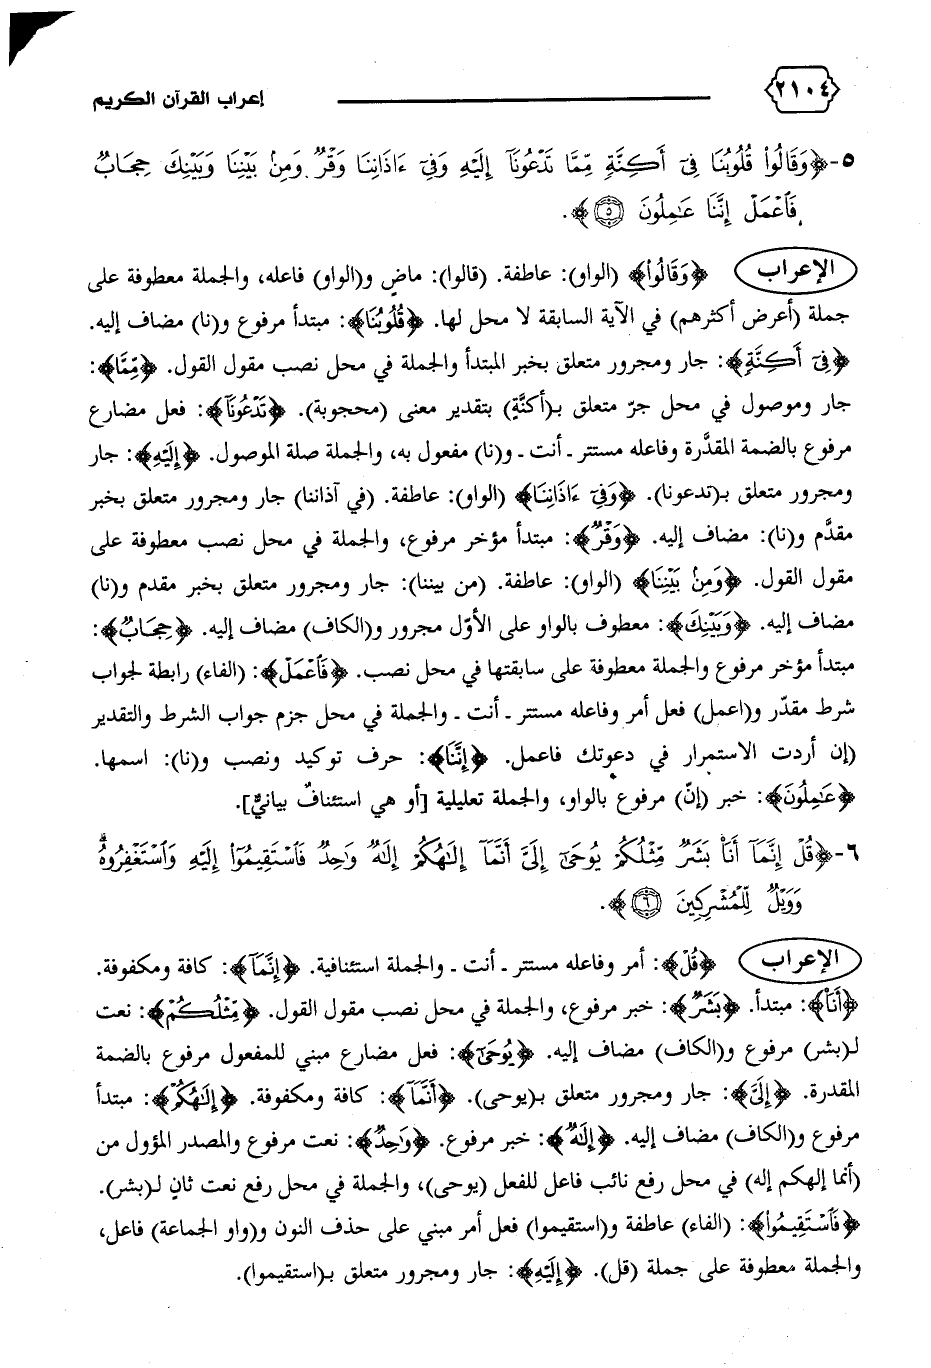 ٢١٠٤ إعراب القرآن الكريم
٥-﴿وَقَالُوا۟ قُلُوبُنَا فِىٓ أَكِنَّةٍ مِّمَّا تَدْعُونَآ إِلَيْهِ وَفِىٓ ءَاذَانِنَا وَقْرٌ وَمِنۢ بَيْنِنَا وَبَيْنِكَ حِجَابٌ
فَٱعْمَلْ إِنَّنَا عَـٰمِلُونَ ٥﴾.
الإعراب ﴿وَقَالُوا۟﴾ (الواو): عاطفة. (قالوا): ماضٍ و(الواو) فاعله، والجملة معطوفة على
جملة (أعرض أكثرهم) في الآية السابقة لا محل لها. ﴿قُلُوبُنَا﴾: مبتدأ مرفوع و(نا) مضاف إليه.
﴿فِىٓ أَكِنَّةٍ﴾: جار ومجرور متعلق بخبر المبتدأ والجملة في محل نصب مقول القول. ﴿مِّمَّا﴾:
جار وموصول في محل جرّ متعلق بـ(أكنَّةٍ) بتقدير معنى (محجوبة). ﴿تَدْعُونَآ﴾: فعل مضارع
مرفوع بالضمة المقدَّرة وفاعله مستتر ـ أنت ـ و(نا) مفعول به، والجملة صلة الموصول. ﴿إِلَيْهِ﴾: جار
ومجرور متعلق بـ(تدعونا). ﴿وَفِىٓ ءَاذَانِنَا﴾ (الواو): عاطفة. (في آذاننا) جار ومجرور متعلق بخبر
مقدَّم و(نا): مضاف إليه. ﴿وَقْرٌ﴾: مبتدأ مؤخر مرفوع، والجملة في محل نصب معطوفة على
مقول القول. ﴿وَمِنۢ بَيْنِنَا﴾ (الواو): عاطفة. (من بيننا): جار ومجرور متعلق بخبر مقدم و(نا)
مضاف إليه. ﴿وَبَيْنِكَ﴾: معطوف بالواو على الأوّل مجرور و(الكاف) مضاف إليه. ﴿حِجَابٌ﴾:
مبتدأ مؤخر مرفوع والجملة معطوفة على سابقتها في محل نصب. ﴿فَٱعْمَلْ﴾: (الفاء) رابطة لجواب
شرط مقدّر و(اعمل) فعل أمر وفاعله مستتر ـ أنت ـ والجملة في محل جزم جواب الشرط والتقدير
(إن أردت الاستمرار في دعوتك فاعمل. ﴿إِنَّنَا﴾: حرف توكيد ونصب و(نا): اسمها.
﴿عَـٰمِلُونَ﴾: خبر (إنّ) مرفوع بالواو، والجملة تعليلية [أو هي استئنافٌ بيانيٌّ].
٦-﴿قُلْ إِنَّمَآ أَنَا۠ بَشَرٌ مِّثْلُكُمْ يُوحَىٰٓ إِلَىَّ أَنَّمَآ إِلَـٰهُكُمْ إِلَـٰهٌ وَٰحِدٌ فَٱسْتَقِيمُوٓا۟ إِلَيْهِ وَٱسْتَغْفِرُوهُ ۗ
وَوَيْلٌ لِّلْمُشْرِكِينَ ٦﴾.
الإعراب ﴿قُلْ﴾: أمر وفاعله مستتر ـ أنت ـ والجملة استئنافية. ﴿إِنَّمَآ﴾: كافة ومكفوفة.
﴿أَنَا۠﴾: مبتدأ. ﴿بَشَرٌ﴾: خبر مرفوع، والجملة في محل نصب مقول القول. ﴿مِّثْلُكُمْ﴾: نعت
لـ(بشر) مرفوع و(الكاف) مضاف إليه. ﴿يُوحَىٰٓ﴾: فعل مضارع مبني للمفعول مرفوع بالضمة
المقدرة. ﴿إِلَىَّ﴾: جار ومجرور متعلق بـ(يوحى). ﴿أَنَّمَآ﴾: كافة ومكفوفة. ﴿إِلَـٰهُكُمْ﴾: مبتدأ
مرفوع و(الكاف) مضاف إليه. ﴿إِلَـٰهٌ﴾: خبر مرفوع. ﴿وَٰحِدٌ﴾: نعت مرفوع والمصدر المؤول من
(أنما إلهكم إله) في محل رفع نائب فاعل للفعل (يوحى)، والجملة في محل رفع نعت ثانٍ لـ(بشر).
﴿فَٱسْتَقِيمُوٓا۟﴾: (الفاء) عاطفة و(استقيموا) فعل أمر مبني على حذف النون و(واو الجماعة) فاعل،
والجملة معطوفة على جملة (قل). ﴿إِلَيْهِ﴾: جار ومجرور متعلق بـ(استقيموا).